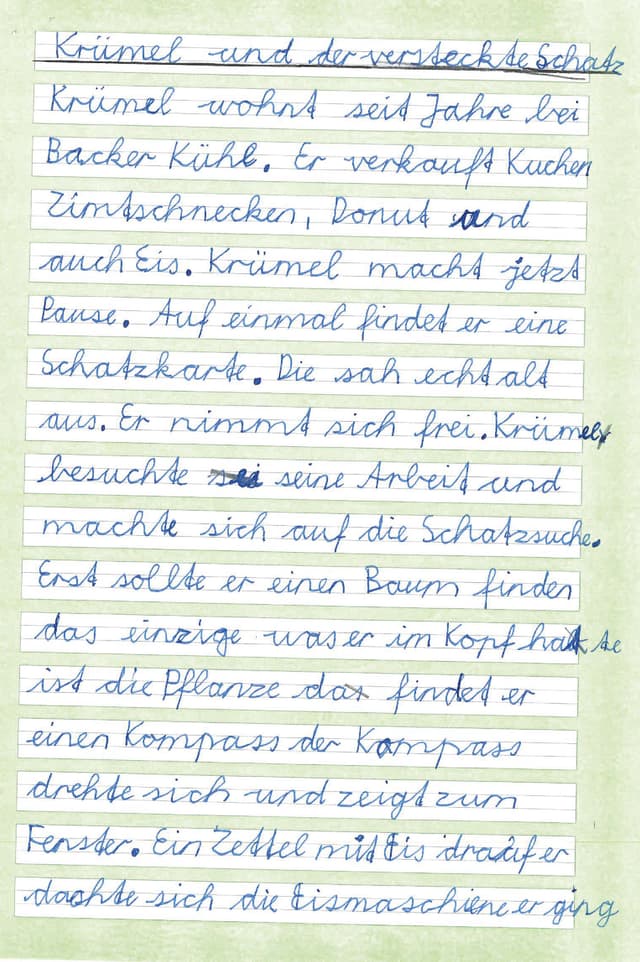 Krümel und der versteckte Schatz
Krümel wohnt seit Jahre bei
Backer Kühl. Er verkauft Kuchen
Zimtschnecken, Donut und
auch Eis. Krümel macht jetzt
Pause. Auf einmal findet er eine
Schatzkarte. Die sah echt alt
aus. Er nimmt sich frei. Krümel
besuchte seine Arbeit und
machte sich auf die Schatzsuche.
Erst sollte er einen Baum finden
das einzige was er im Kopf hatte
ist die Pflanze da findet er
einen Kompass der Kompass
drehte sich und zeigt zum
Fenster. Ein Zettel mit Eis drauf er
dachte sich die Eismaschiene er ging